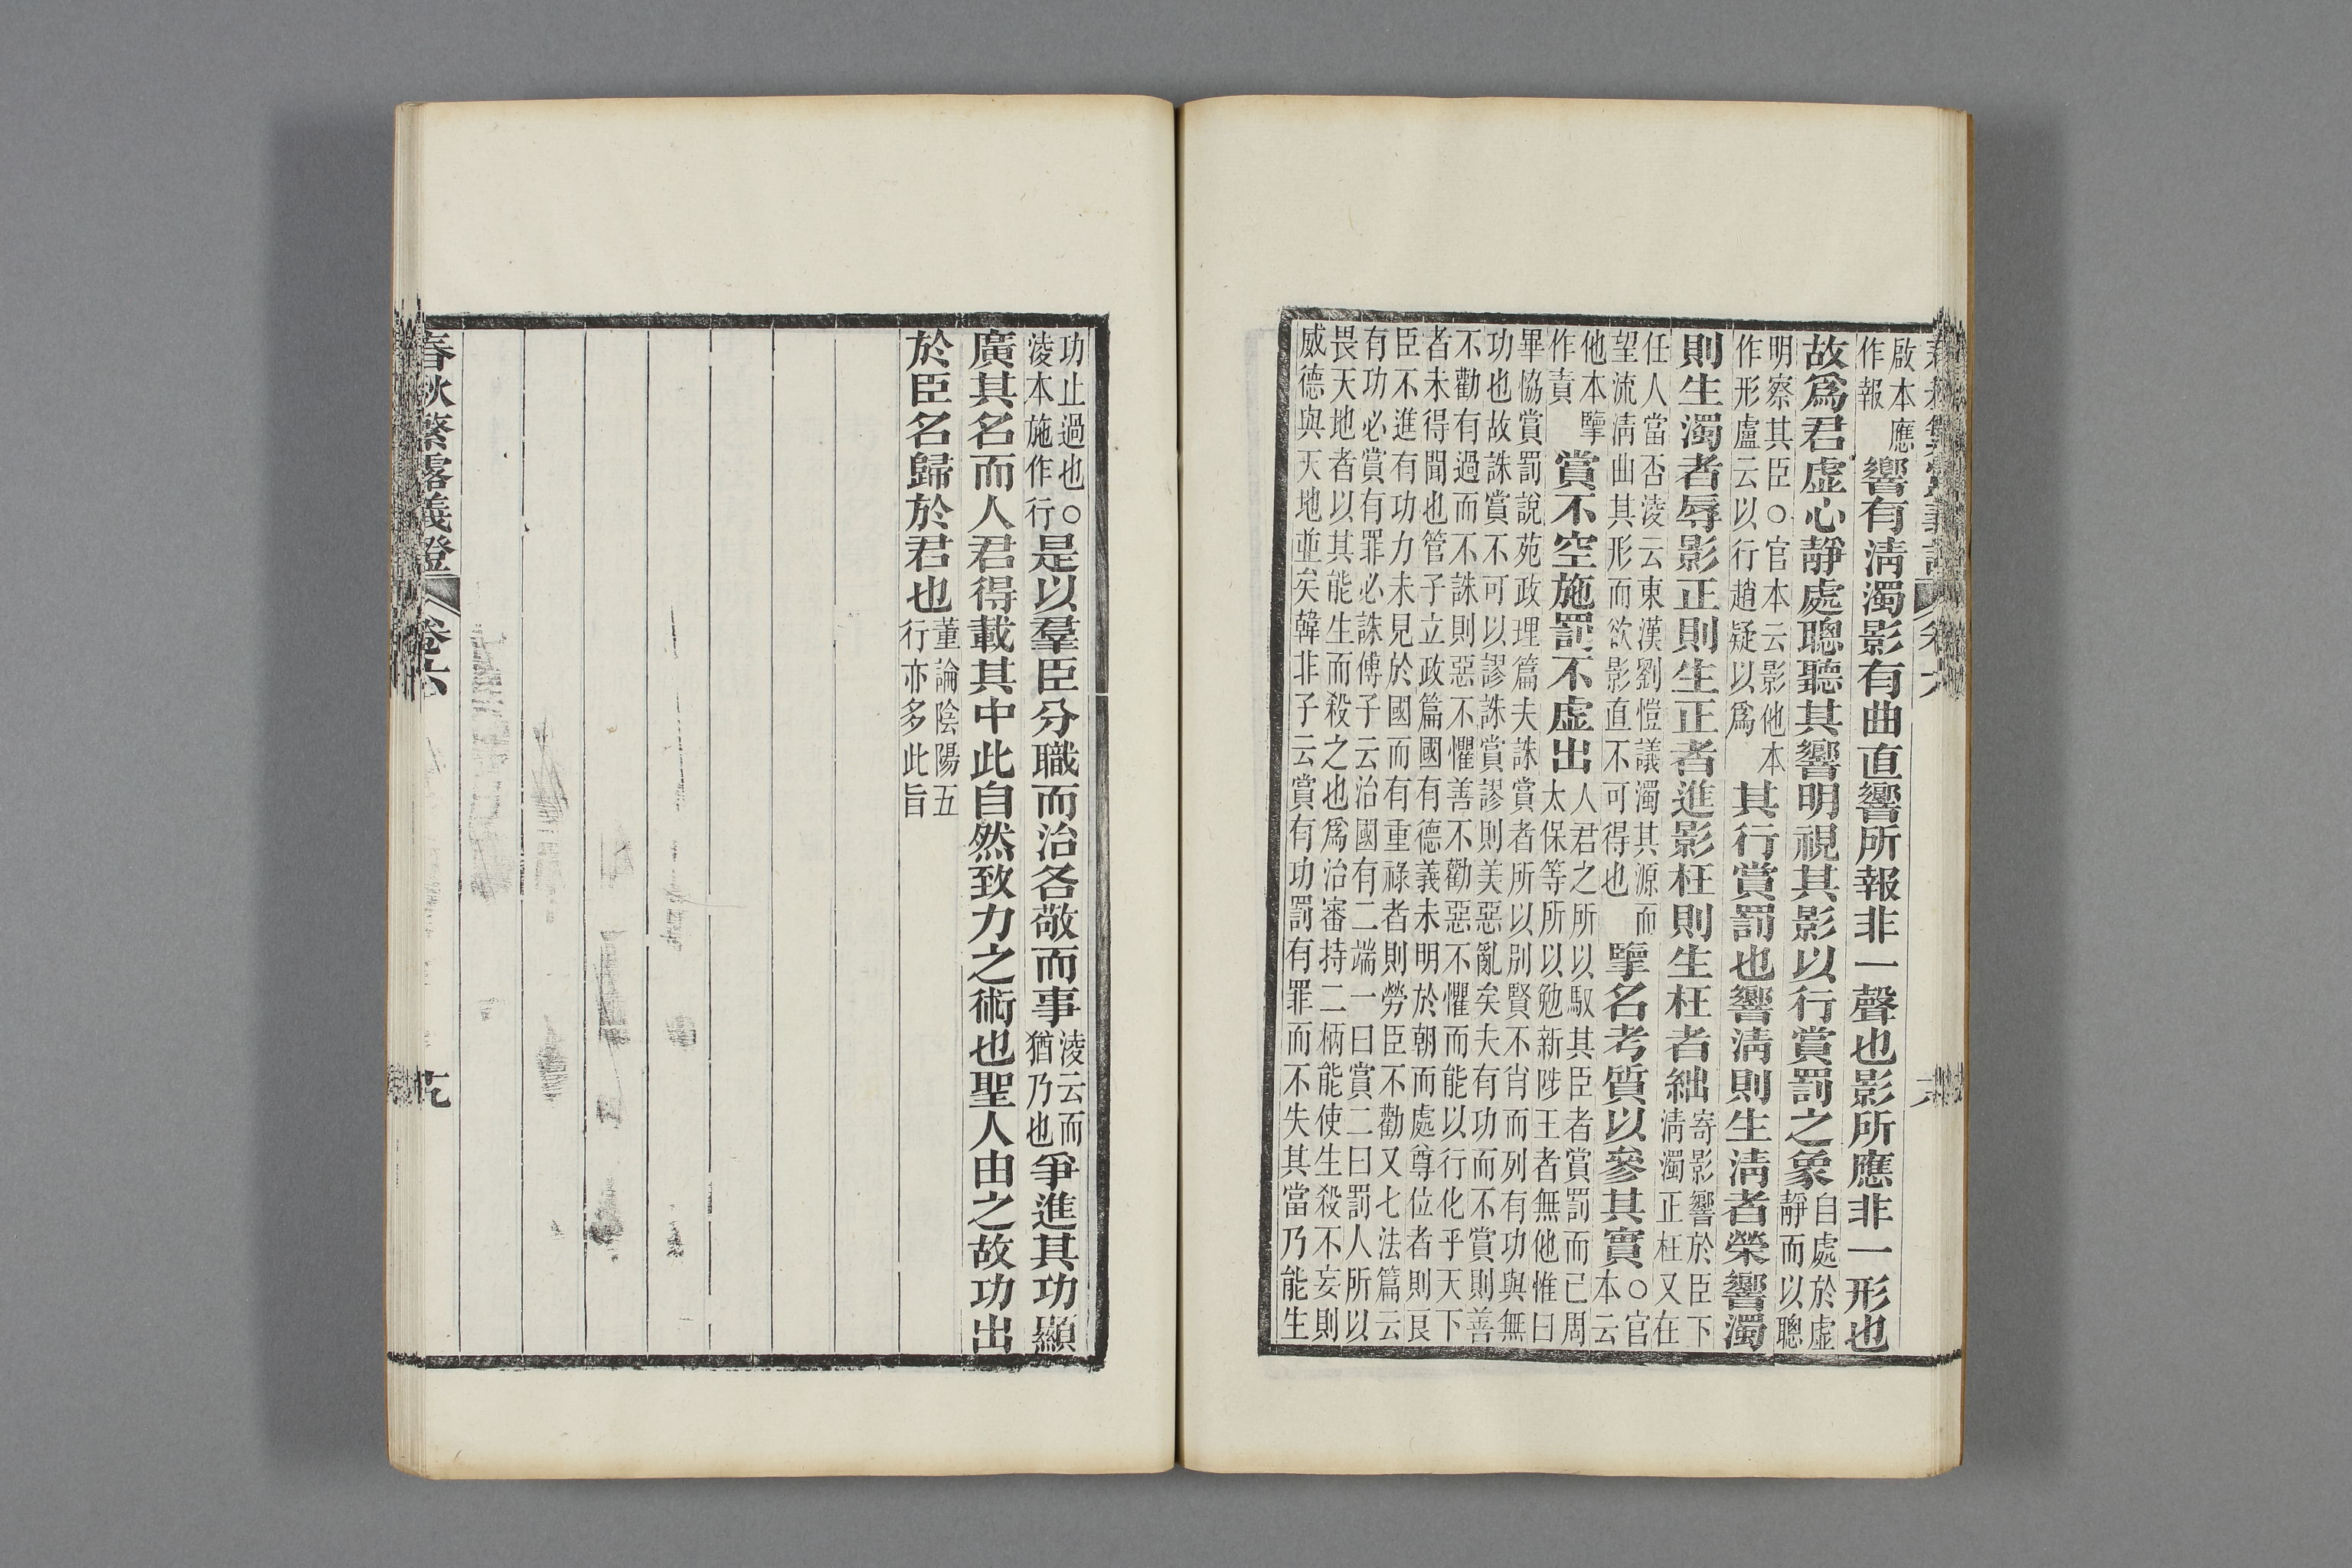 啟本應作報響有淸濁影有曲直響所報非一聲也影所應非一形也
故爲君虛心靜處聰聽其響明視其影以行賞罰之象自處於虛靜而以聰
明察其臣○官本云影他本作形盧云以行趙疑以爲其行賞罰也響淸則生淸者榮響濁
則生濁者辱影正則生正者進影枉則生枉者絀寄影響於臣下淸濁正枉又在
任人當否淩云東漢劉愷議濁其源而望流淸曲其形而欲影直不可得也擥名考質以參其實○官本云
他本擥作責賞不空施罰不虛出人君之所以馭其臣者賞罰而已周太保等所以勉新陟王者無他惟曰
畢協賞罰說苑政理篇夫誅賞者所以別賢不肖而列有功與無
功也故誅賞不可以謬誅賞謬則美惡亂矣夫有功而不賞則善
不勸有過而不誅則惡不懼善不勸惡不懼而能以行化乎天下
者未得聞也管子立政篇國有德義未明於朝而處尊位者則良
臣不進有功力未見於國而有重祿者則勞臣不勸又七法篇云
有功必賞有罪必誅傅子云治國有二端一曰賞二曰罰人所以
畏天地者以其能生而殺之也爲治審持二柄能使生殺不妄則
威德與天地並矣韓非子云賞有功罰有罪而不失其當乃能生
功止過也○淩本施作行是以羣臣分職而治各敬而事淩云而猶乃也爭進其功顯
廣其名而人君得載其中此自然致力之術也聖人由之故功出
於臣名歸於君也董論陰陽五行亦多此旨
春秋繁露義證 卷六